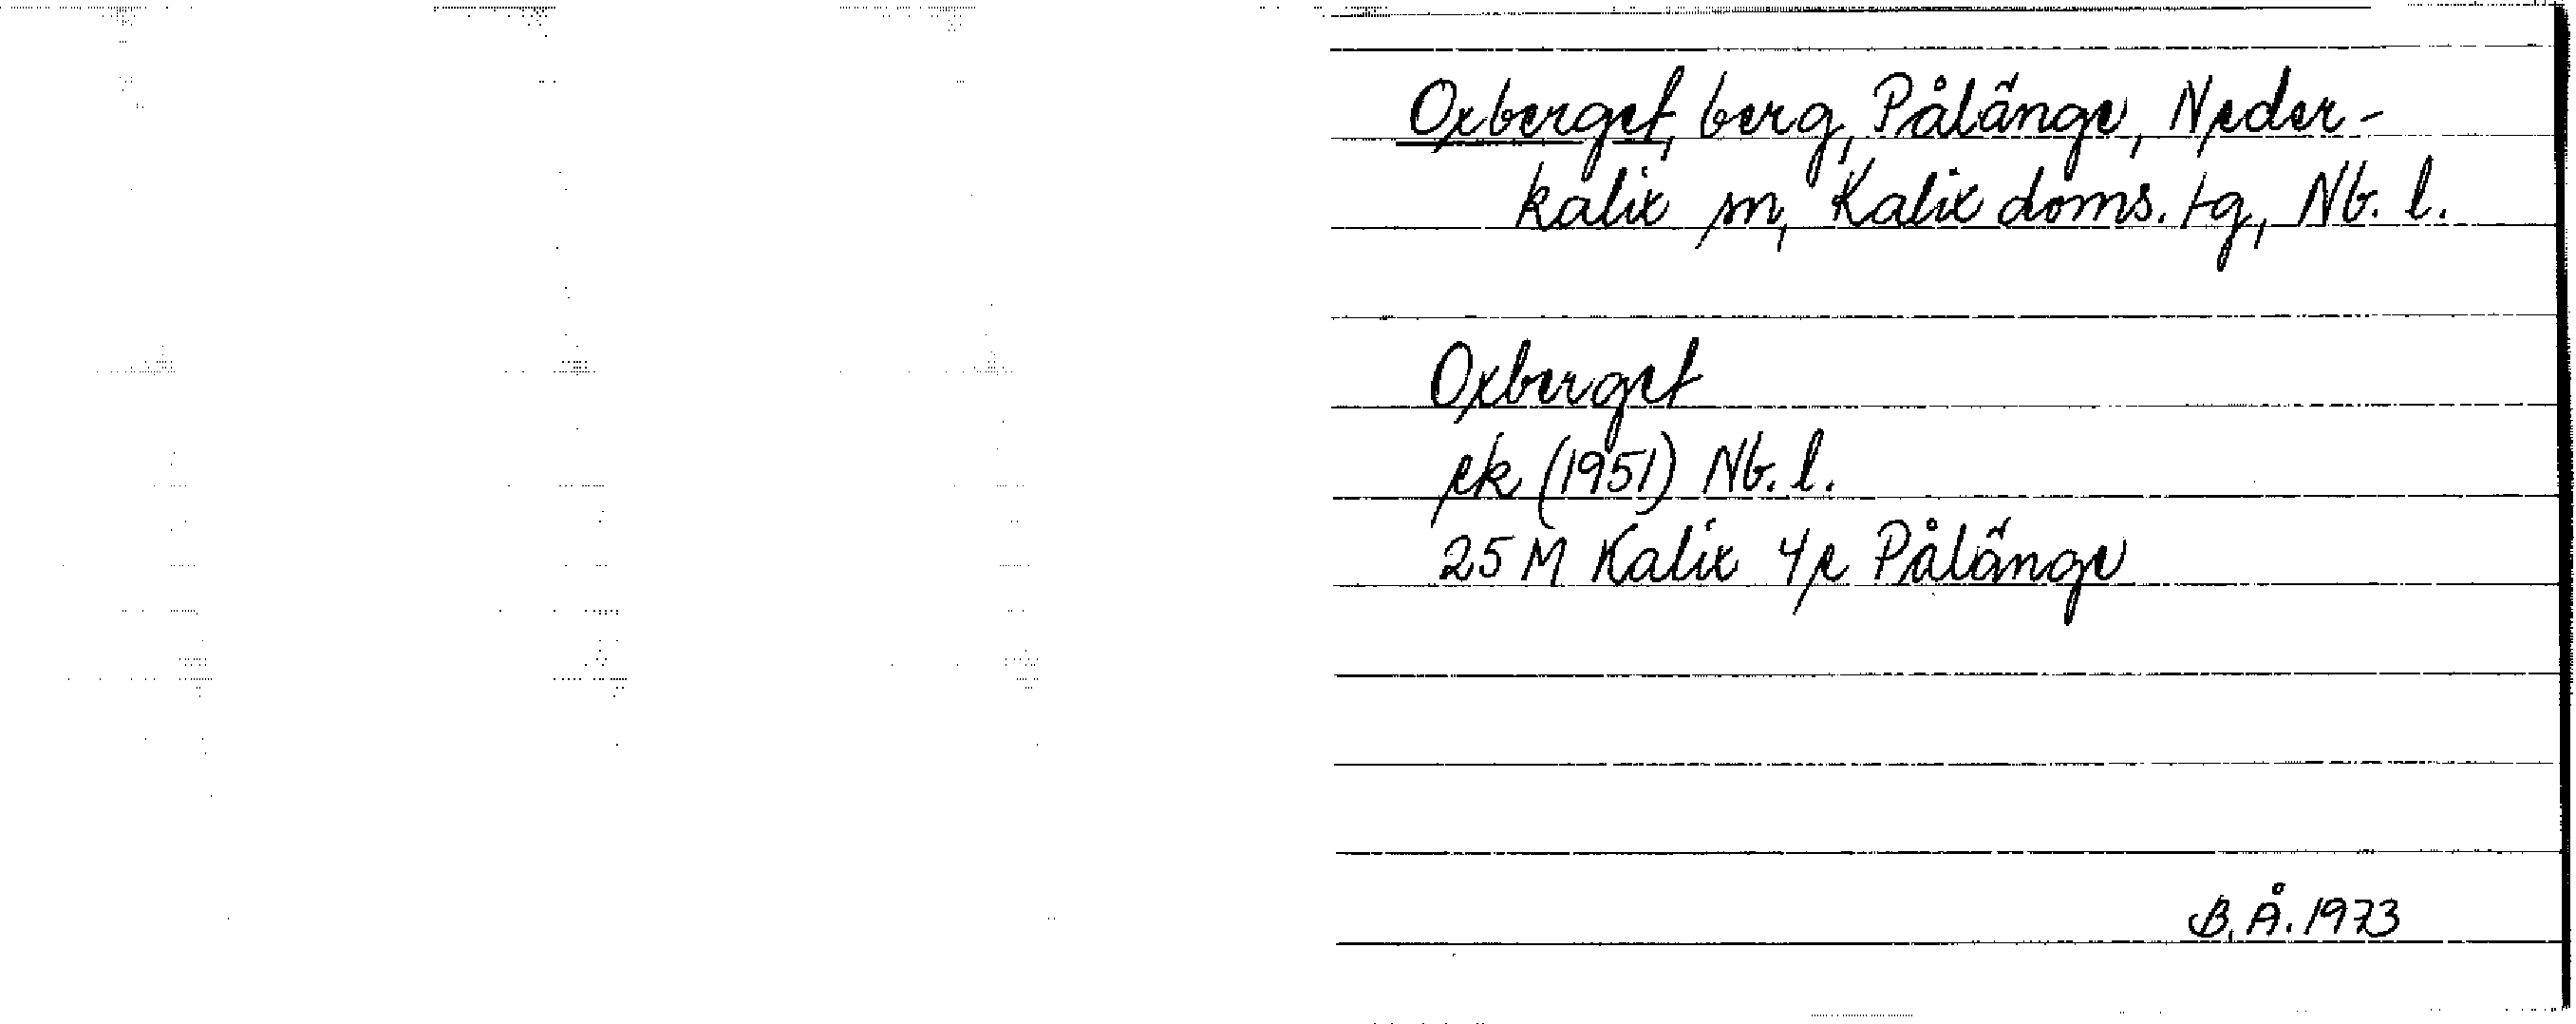 Oxberget, berg, Pålänge, Neder-
kalix sn, Kalix doms. tg, Nb. l.
Oxberget
ek (1951) Nb. l.
25 M Kalix 4e Pålänge
B. Å. 1973